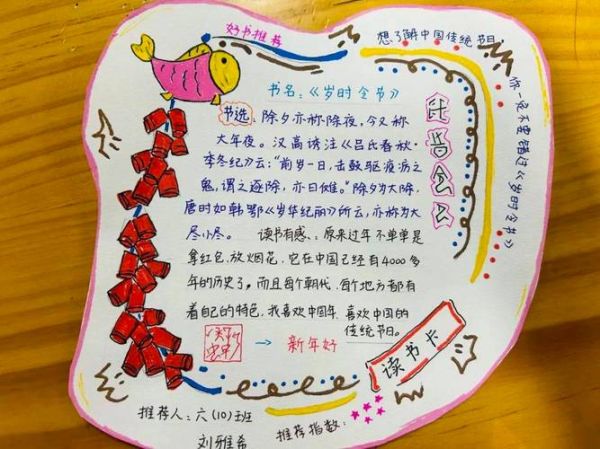 好书推荐
想了解中国传统节日,
你一定不要错过《岁时令书》
书名:《岁时令书》
书选:除夕亦称除夜,今又称
大年夜。汉高诱注《吕氏春秋·
季冬纪》云:"前岁一日,击鼓驱疫疠之
鬼,谓之逐除,亦曰傩。"除夕为大除,
唐时如韩鄂《岁华纪丽》所云,亦称为大
尽小尽。 读书有感:原来过年不单单是
拿红包,放烟花,它在中国已经有4000多
年的历史了,而且每个朝代,每个地方都有
着自己的特色,我喜欢中国年,喜欢中国的
传统节日。
→ 新年好
读书卡
推荐人:六(10)班
刘雅希
推荐指数: